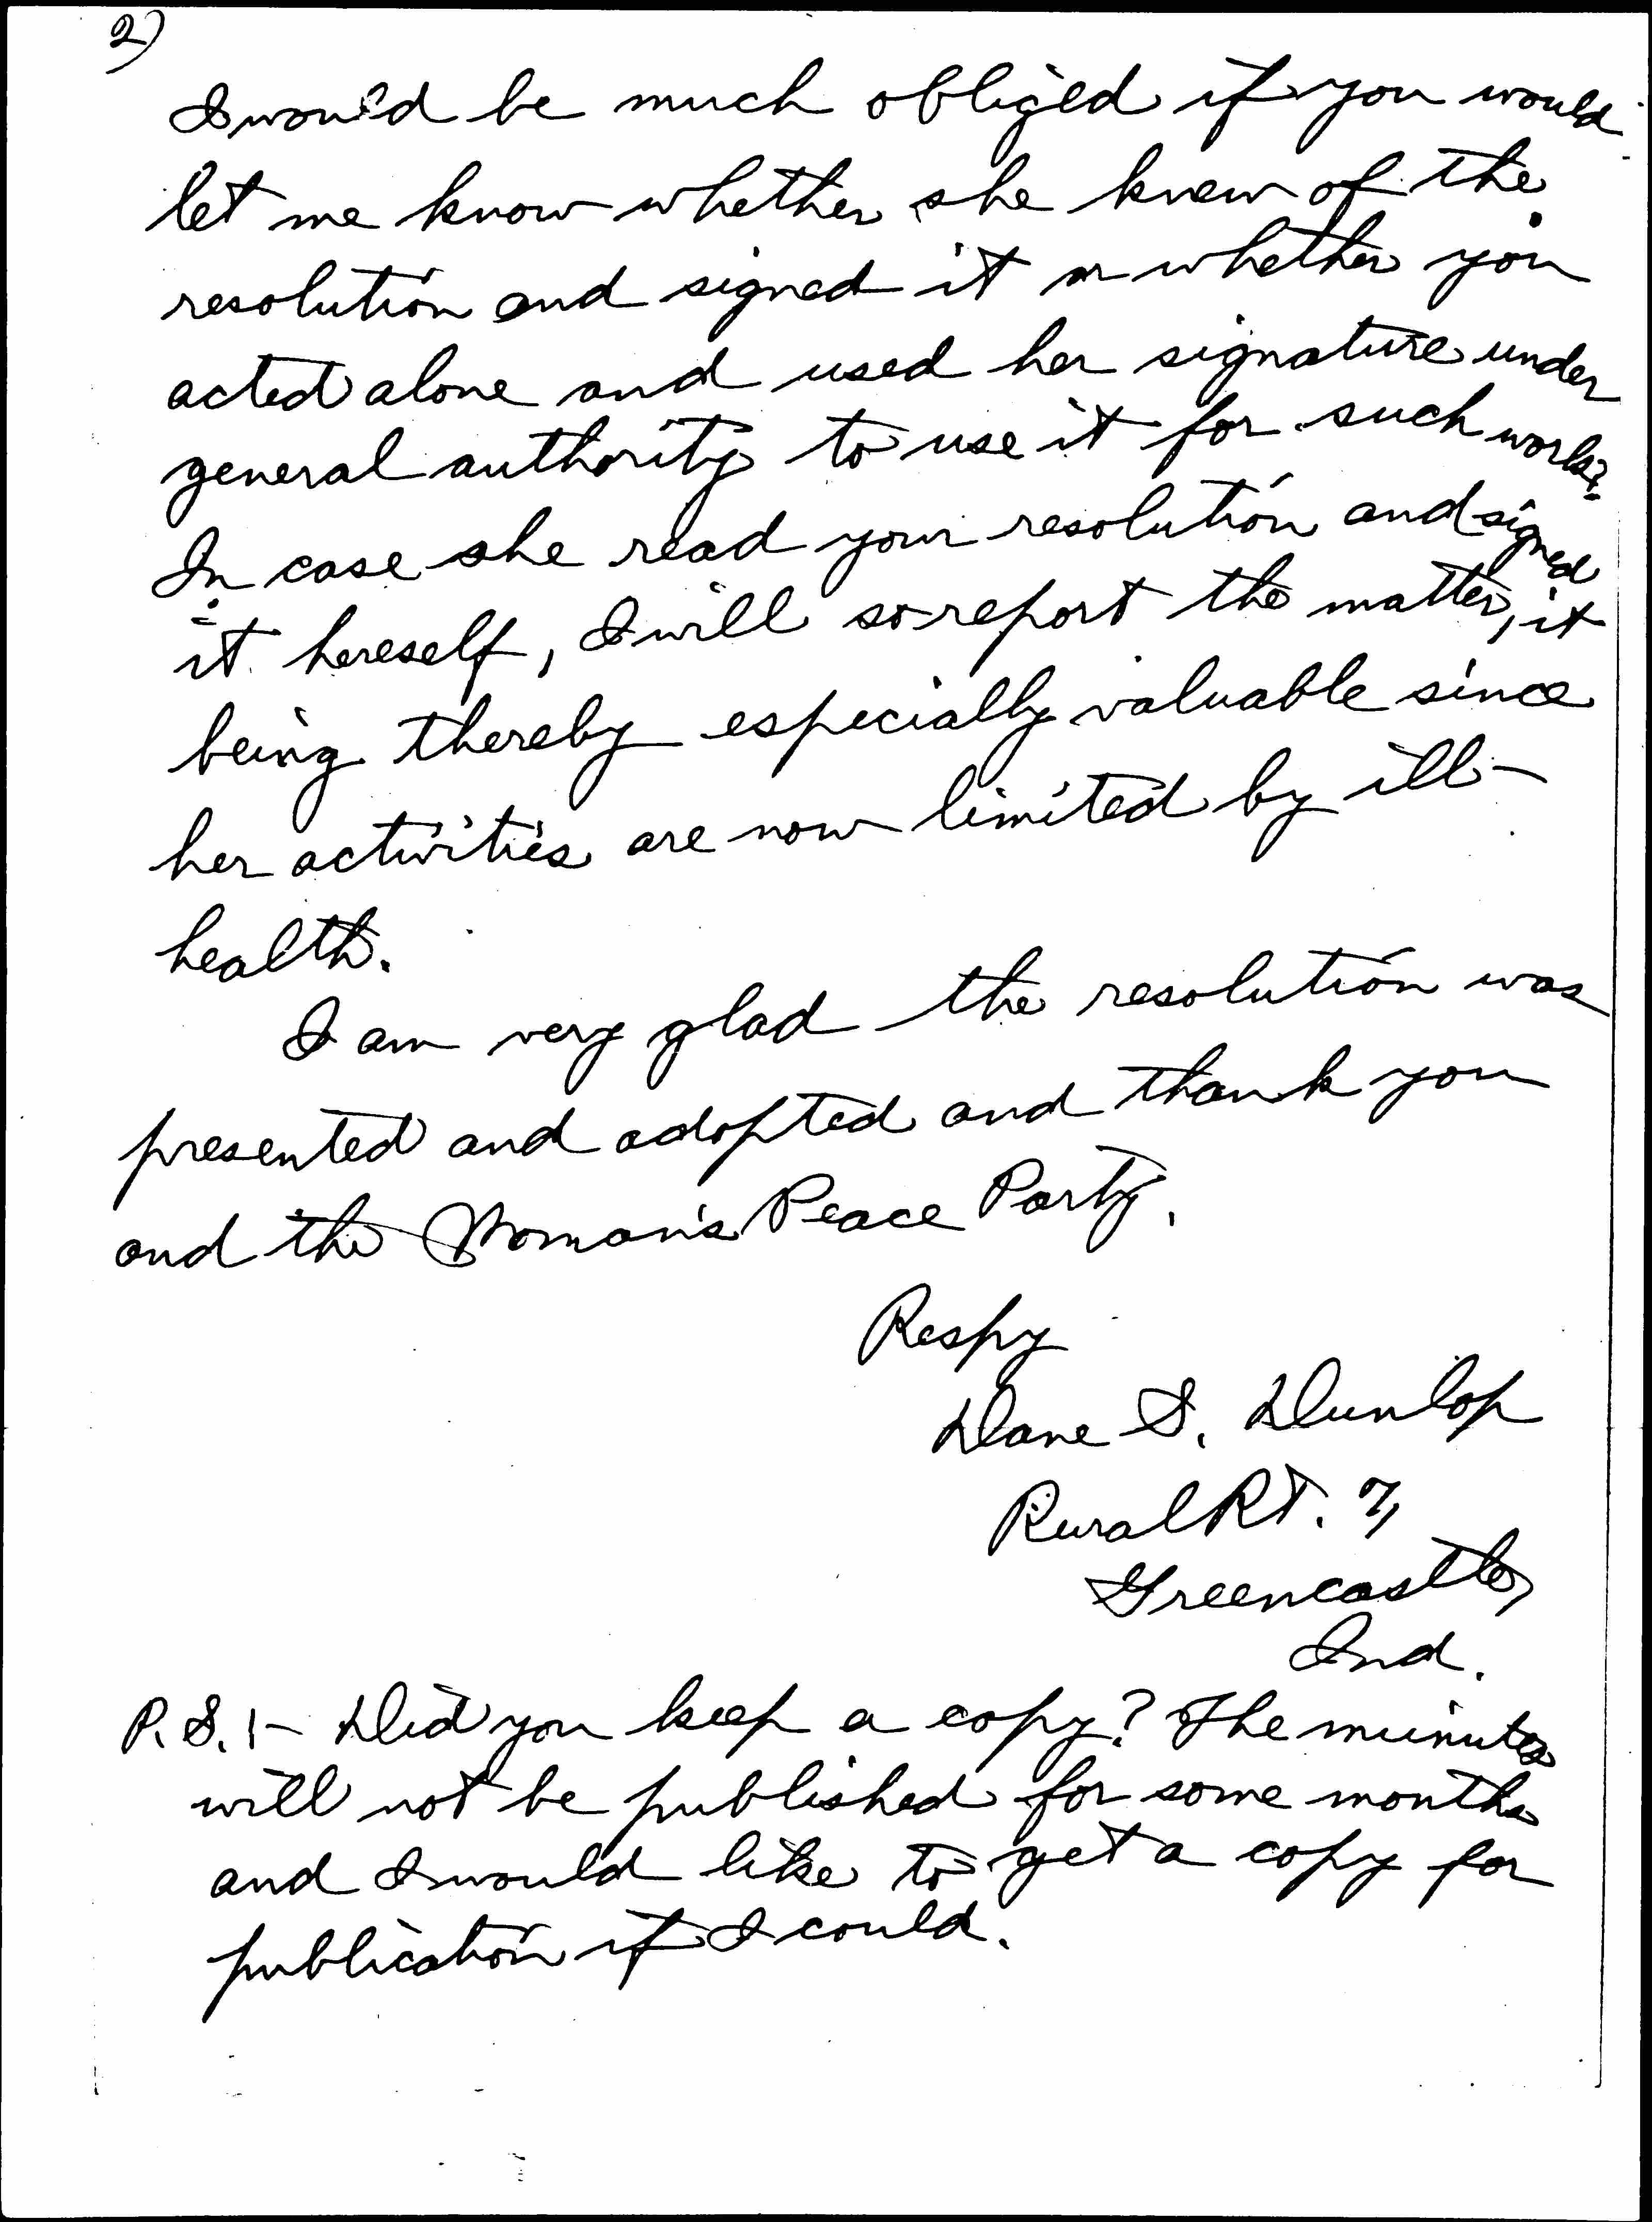 2)
I would be much obliged if you would
let me know whether she knew of the
resolution and signed it or whether you
acted alone and used her signature under
general authority to use it for such work?
In case she read your resolution and signed
it hereself, I will so report the matter, it
being thereby especially valuable since
her activities are now limited by ill-
health.
I am very glad the resolution was
presented and adopted and thank you
and the Woman's Peace Party.
Respy
Dane S. Dunlop
Rural Rt. 7,
Greencastle,
Ind.
P.S. :- Did you keep a copy? The minutes
will not be published for some months
and I would like to get a copy for
publication if I could.